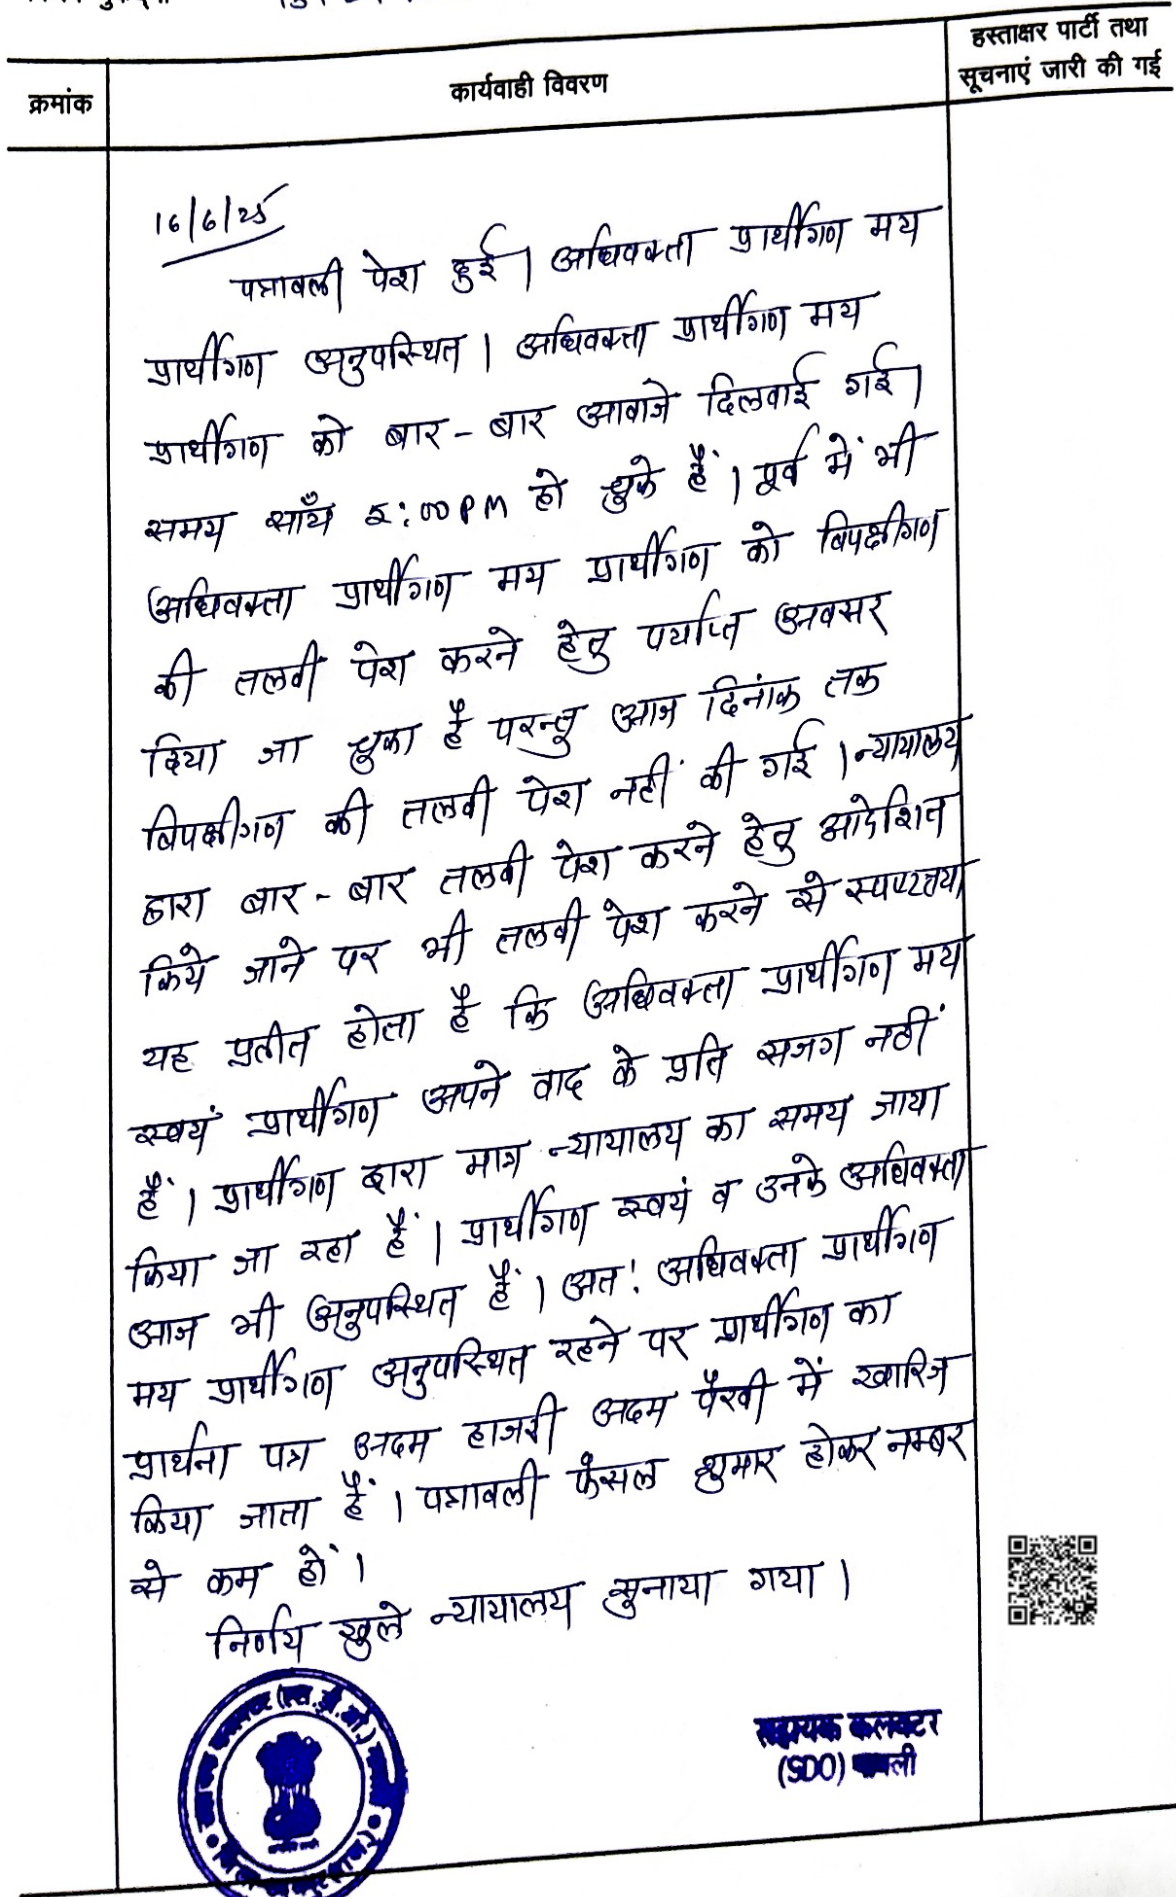 हस्ताक्षर पार्टी तथा
क्रमांक कार्यवाही विवरण सूचनाएं जारी की गई
16/6/25
पत्रावली पेश हुई। अधिवक्ता प्रार्थीगण मय
प्रार्थीगण अनुपस्थित। अधिवक्ता प्रार्थीगण मय
प्रार्थीगण को बार-बार आवाजे दिलवाई गई।
समय साँय 5:00 PM हो चुके हैं। पूर्व में भी
अधिवक्ता प्रार्थीगण मय प्रार्थीगण को विपक्षीगण
की तलवी पेश करने हेतु पर्याप्त अवसर
दिया जा चुका है परन्तु आज दिनांक तक
विपक्षीगण की तलवी पेश नहीं की गई। न्यायालय
द्वारा बार-बार तलवी पेश करने हेतु आदेशित
किये जाने पर भी तलवी पेश करने से स्पष्टतया
यह प्रतीत होता है कि अधिवक्ता प्रार्थीगण मय
स्वयं प्रार्थीगण अपने वाद के प्रति सजग नहीं
हैं। प्रार्थीगण द्वारा मात्र न्यायालय का समय जाया
किया जा रहा हैं। प्रार्थीगण स्वयं व उनके अधिवक्ता
आज भी अनुपस्थित हैं। अत: अधिवक्ता प्रार्थीगण
मय प्रार्थीगण अनुपस्थित रहने पर प्रार्थीगण का
प्रार्थना पत्र अदम हाजरी अदम पैरवी में खारिज
किया जाता हैं। पत्रावली फैसल शुमार होकर नम्बर
से कम हों।
निर्णय खुले न्यायालय सुनाया गया।
सहायक कलक्टर
(SDO)